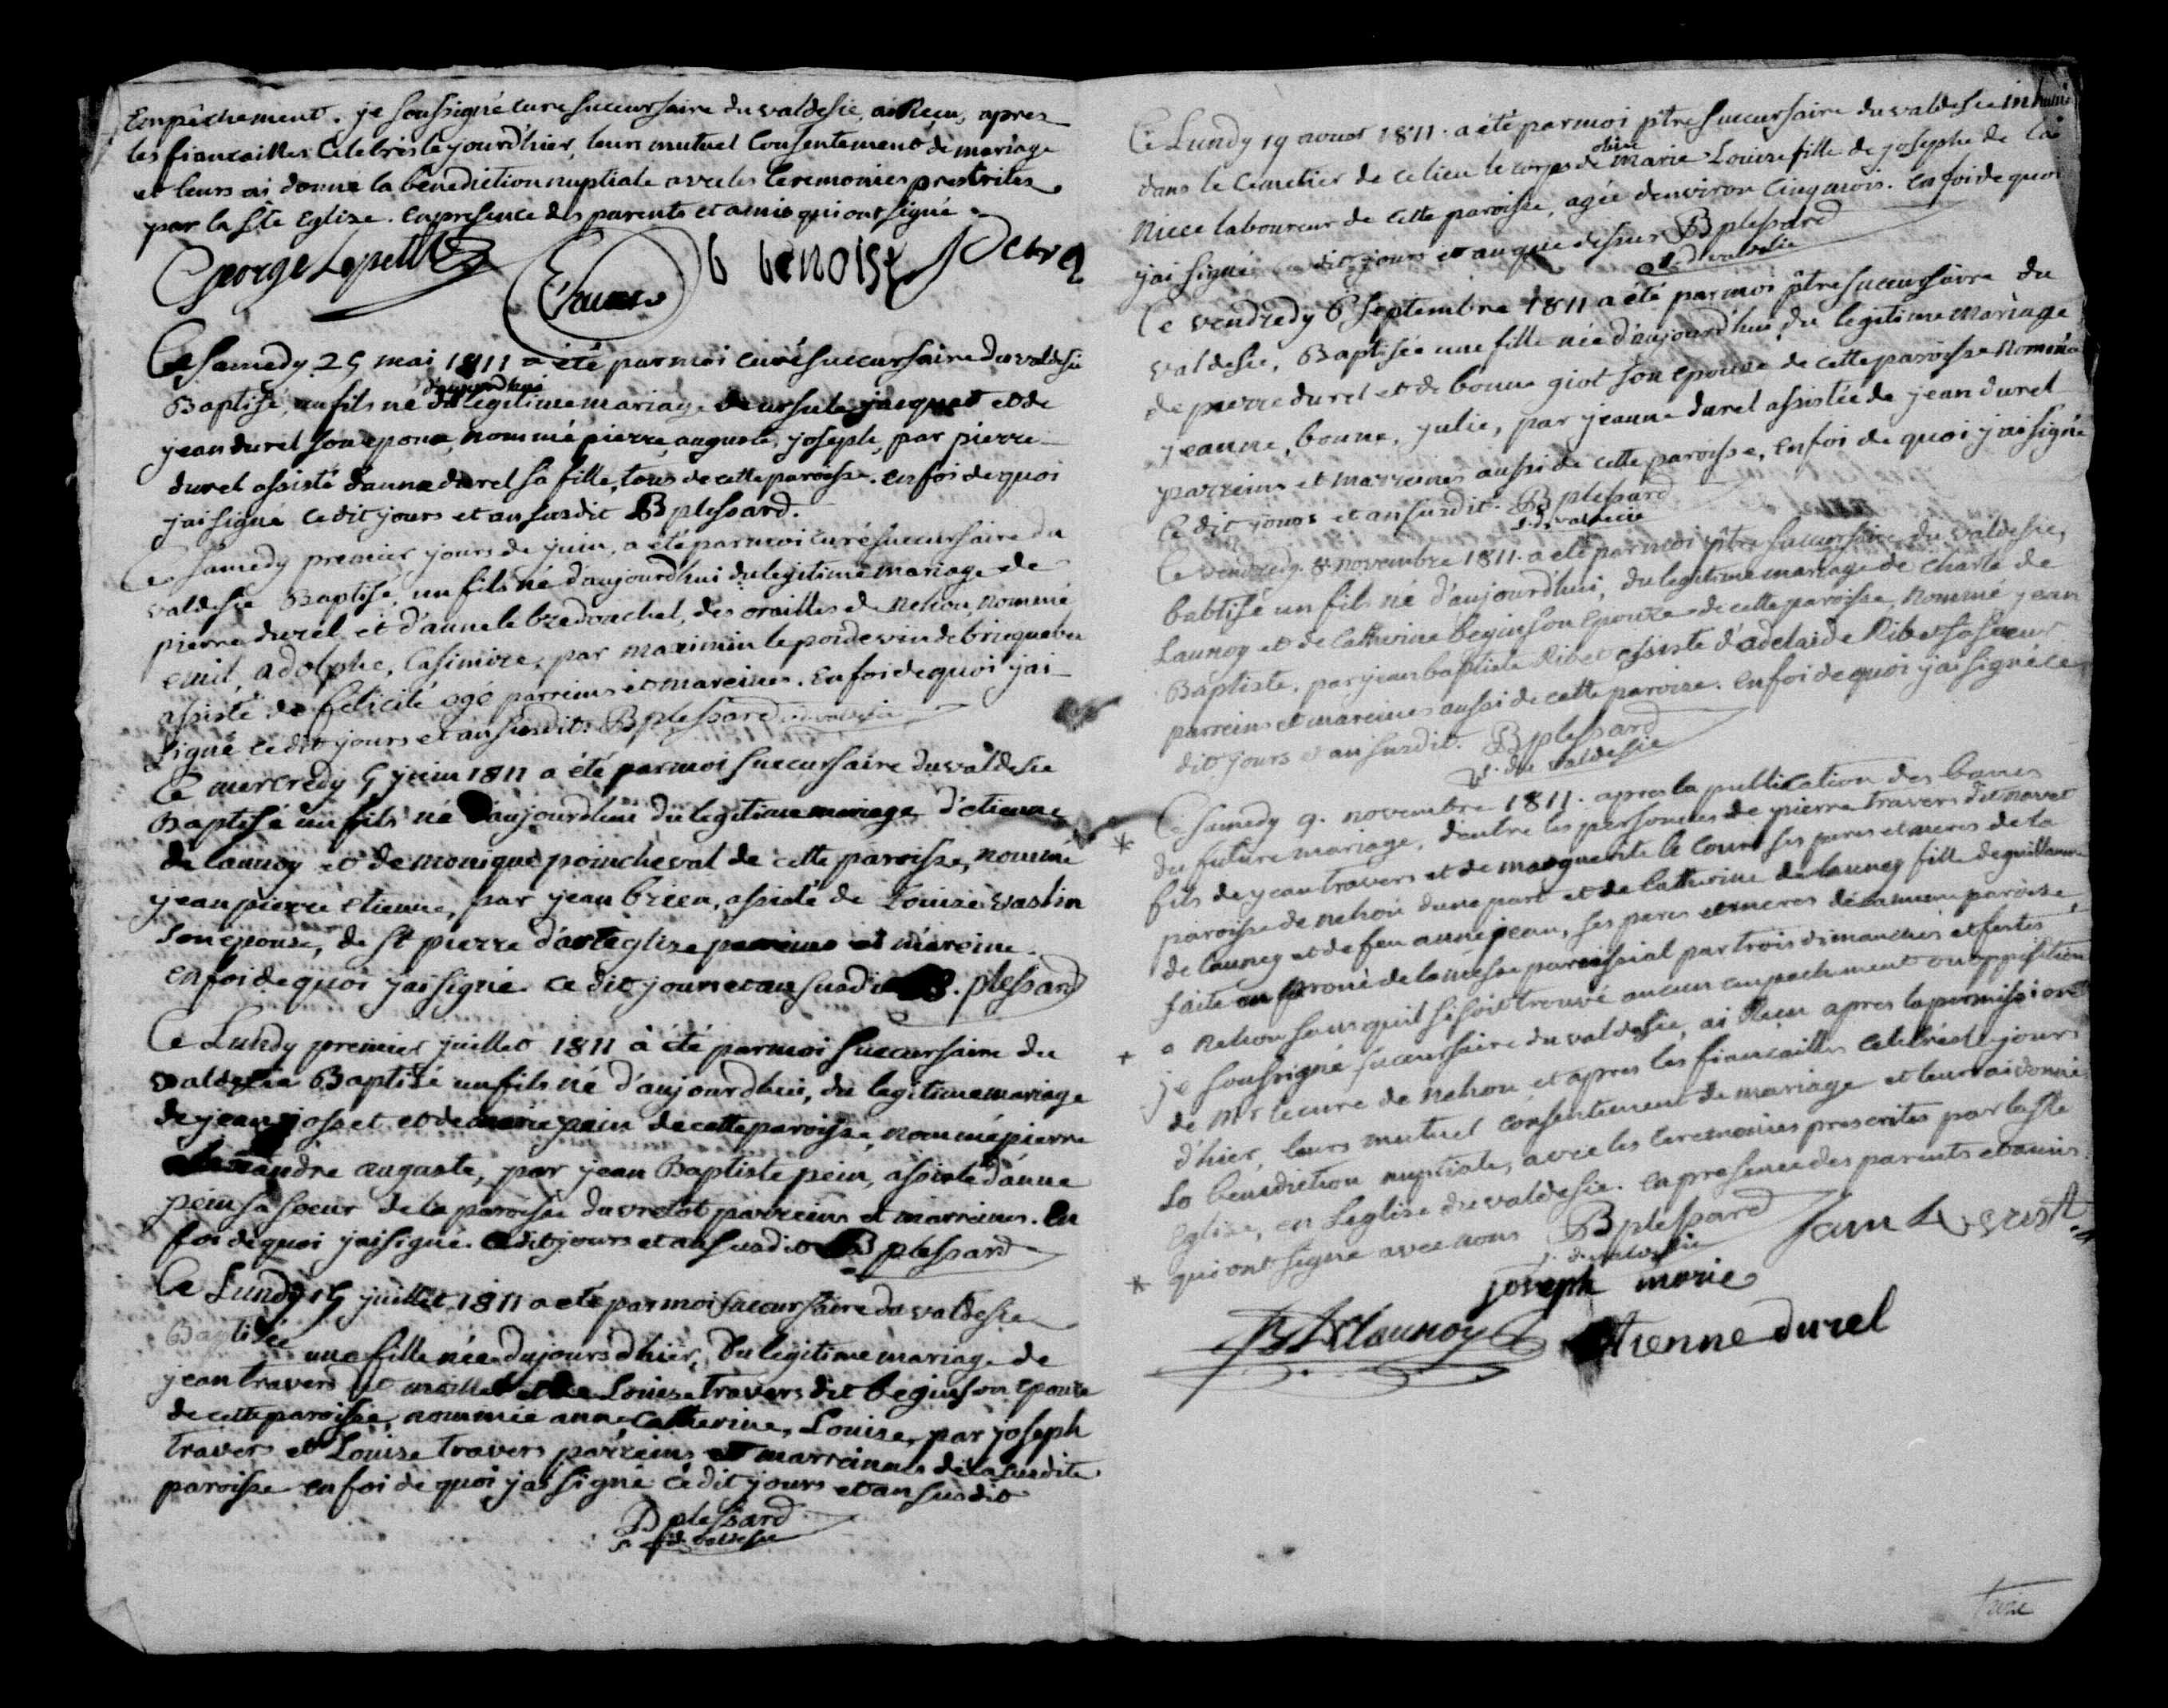 Empêchement. je soussigné cure succursaire du valdesie, ai Recu, apres
les fiancailles Celebrés le jourd'hier, leurs mutuel Consentement de mariage
et leurs ai donné la bénédiction nuptiale avec les Ceremonies prescrites
par la Ste Eglise. en presence des parents et amis qui ont signé.
George Lepetit b benoist
Ce Samedy 25 mai 1811 a été par moi curé succursaire du valdesie
Baptisé, un fils né d'aujourd'hui du legitime mariage de ursule jacquet et de
jean durel son epoux, nommé pierre, auguste, joseph, par pierre
durel assisté d'anne durel sa fille, tous de cette paroisse. en foi de quoi
j'ai signé ce dit jours et an susdit B plessard.
Ce Samedy premier jours de juin, a été par moi curé succursaire du
valdesie Baptisé, un fils né d'aujourd'hui du legitime mariage de
pierre durel et d'anne le bredonchel, des orailles de Nehou, nommé
emil, adolphe, Casimire, par maximin le poidevin de bricquebec
assisté de felicité ogé parreins et mareines. en foi de quoi j'ai
signé ce dit jours et an susdit. B plessard du valdesie
Ce mercredy 5 juin 1811 a été par moi succursaire du valdesie
Baptisé un fils né d'aujourd'hui du legitime mariage d'etienne
de launoy et de monique poincheval de cette paroisse, nommé
jean pierre etienne, par jean brien, assisté de Louise vastin
son épouse, de St pierre d'arteglise parreins et mareine.
en foi de quoi j'ai signé ce dit jours et an susdit B. plessard
Ce Lundy premier juillet 1811 à été par moi succursaire du
valdesie Baptisé un fils né d'aujourd'hui, du legitime mariage
de jean josset et de marie pein de cette paroisse, nommé pierre
alexandre auguste, par jean Baptiste pein, assisté d'anne
pein sa soeur de la paroisse du vretot parreins et marreines. En
foi de quoi j'ai signé. ce dit jours et an susdit B plessard
Ce Lundy 15 juillet 1811 a été par moi succursaire du valdesie
Baptisée une fille née du jours d'hier, du legitime mariage de
jean travers et Louise travers dit begin son epouse
de cette paroisse, nommée anne, Catherine, Louise, par joseph
travers et Louise travers parreins et marreines de la susdite
paroisse en foi de quoi j'ai signé ce dit jours et an susdit
B plessard
d. valdesie
Ce Lundy 19 aout 1811. a été par moi ptre succursaire du valdesie inhumé
dans le Cemetier de ce lieu le corps de marie Louise fille de josephe de la
Niece laboureur de cette paroisse, agée d'environ Cinq mois. en foi de quoi
j'ai signé ce dit jours et an que dessus B plessard
d. valdesie
Ce vendredy 6 Septembre 1811 a été par moi ptre succursaire du
valdesie, Baptisée une fille née d'aujourd'hui, du legitime mariage
de pierre durel et de bonne giot son epouse de cette paroisse nommée
jeanne, bonne, julie, par jeanne durel assistée de jean durel
parreins et marreines aussi de cette paroisse, en foi de quoi j'ai signé
ce dit jours et an susdit. B plessard
d. valdesie
Ce vendredy 8 novembre 1811. a été par moi ptre succursaire du valdesie,
babtisé un fils né d'aujourd'hui, du legitime mariage de Charle de
Launoy et de Catherine begin son epouze de cette paroisse, nommé jean
Baptiste, par jean baptiste Ribet assisté d'adelaide Ribet sa soeur
parreins et mareines aussi de cette paroise. en foi de quoi j'ai signé ce
dit jours et an susdit. B plessard
d. du valdesie
Ce Samedy 9. novembre 1811. apres la publication des bans
du future mariage, d'entre les personnes de pierre travers dit
fils de jean travers et de marguerite le Court ses peres et meres de la
paroisse de nehou d'une part et de Catherine de launey fille de guillaume
de launey et de feu anne jean, ses peres et meres de la meme paroise,
faite au prone de la messe paroissial par trois dimanches et festes
a Nehou sans quil se soit trouvé aucun empechement ou opposition
je soussigné succursaire du valdesie, ai Recu apres la permission
de Mr le cure de nehou et apres les fiancailles Celebrés le jours
d'hier, leurs mutuel consentement de mariage et leurs ai donné
La benediction nuptiale, avec les Ceremonies prescrites par la Ste
Eglise, en Leglise du valdesie. en presence des parents et amis.
qui ont signé avec nous B plessard
d. du valdesie
joseph marie
Etienne durel